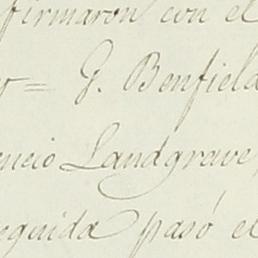 firmaron con el
= G. Benfield
encio Landgrave,
eguida pasó el